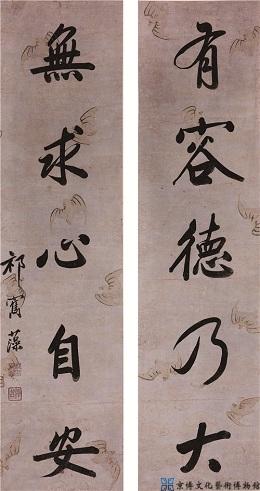 有容德乃大
無求心自安
祁寯藻
京博文化藝術博物館